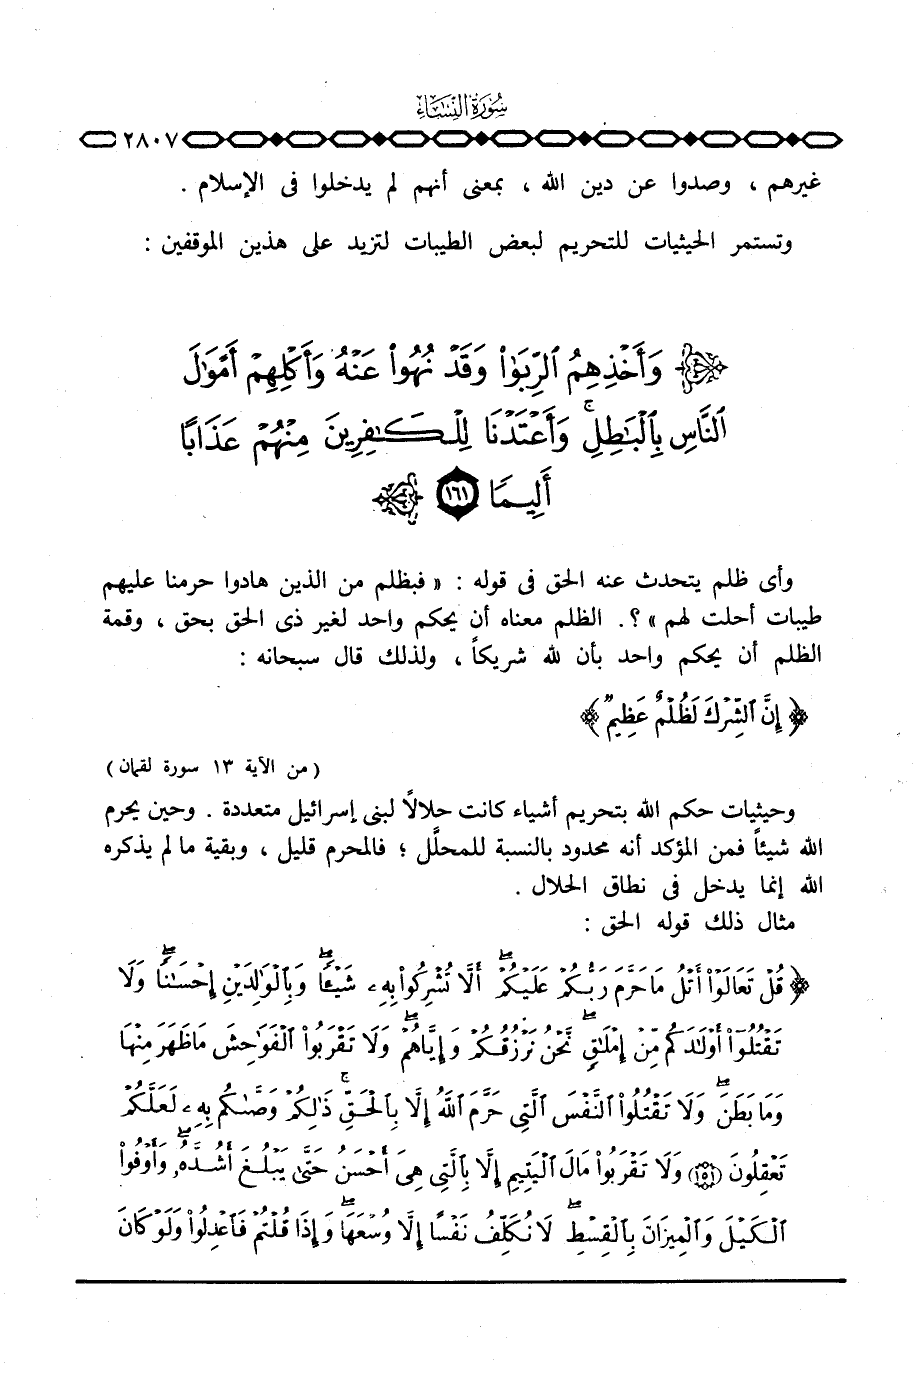 سُورَةُ النِّسَاءِ
٢٨٠٧
غيرهم ، وصدوا عن دين الله ، بمعنى أنهم لم يدخلوا فى الإسلام .
وتستمر الحيثيات للتحريم لبعض الطيبات لتزيد على هذين الموقفين :
وَأَخْذِهِمُ ٱلرِّبَوٰا۟ وَقَدْ نُهُوا۟ عَنْهُ وَأَكْلِهِمْ أَمْوَٰلَ
ٱلنَّاسِ بِٱلْبَٰطِلِ ۚ وَأَعْتَدْنَا لِلْكَٰفِرِينَ مِنْهُمْ عَذَابًا
أَلِيمًا ١٦١
وأى ظلم يتحدث عنه الحق فى قوله : « فبظلم من الذين هادوا حرمنا عليهم
طيبات أحلت لهم » ؟. الظلم معناه أن يحكم واحد لغير ذى الحق بحق ، وقمة
الظلم أن يحكم واحد بأن لله شريكاً ، ولذلك قال سبحانه :
﴿ إِنَّ ٱلشِّرْكَ لَظُلْمٌ عَظِيمٌ ﴾
( من الآية ١٣ سورة لقمان )
وحيثيات حكم الله بتحريم أشياء كانت حلالاً لبنى إسرائيل متعددة . وحين يحرم
الله شيئاً فمن المؤكد أنه محدود بالنسبة للمحلَّل ؛ فالمحرم قليل ، وبقية ما لم يذكره
الله إنما يدخل فى نطاق الحلال .
مثال ذلك قوله الحق :
﴿ قُلْ تَعَالَوْا۟ أَتْلُ مَا حَرَّمَ رَبُّكُمْ عَلَيْكُمْ ۖ أَلَّا تُشْرِكُوا۟ بِهِۦ شَيْـًٔا ۖ وَبِٱلْوَٰلِدَيْنِ إِحْسَٰنًا ۖ وَلَا
تَقْتُلُوٓا۟ أَوْلَٰدَكُم مِّنْ إِمْلَٰقٍ ۖ نَّحْنُ نَرْزُقُكُمْ وَإِيَّاهُمْ ۖ وَلَا تَقْرَبُوا۟ ٱلْفَوَٰحِشَ مَا ظَهَرَ مِنْهَا
وَمَا بَطَنَ ۖ وَلَا تَقْتُلُوا۟ ٱلنَّفْسَ ٱلَّتِى حَرَّمَ ٱللَّهُ إِلَّا بِٱلْحَقِّ ۚ ذَٰلِكُمْ وَصَّىٰكُم بِهِۦ لَعَلَّكُمْ
تَعْقِلُونَ ١٥١ وَلَا تَقْرَبُوا۟ مَالَ ٱلْيَتِيمِ إِلَّا بِٱلَّتِى هِىَ أَحْسَنُ حَتَّىٰ يَبْلُغَ أَشُدَّهُۥ ۖ وَأَوْفُوا۟
ٱلْكَيْلَ وَٱلْمِيزَانَ بِٱلْقِسْطِ ۖ لَا نُكَلِّفُ نَفْسًا إِلَّا وُسْعَهَا ۖ وَإِذَا قُلْتُمْ فَٱعْدِلُوا۟ وَلَوْ كَانَ